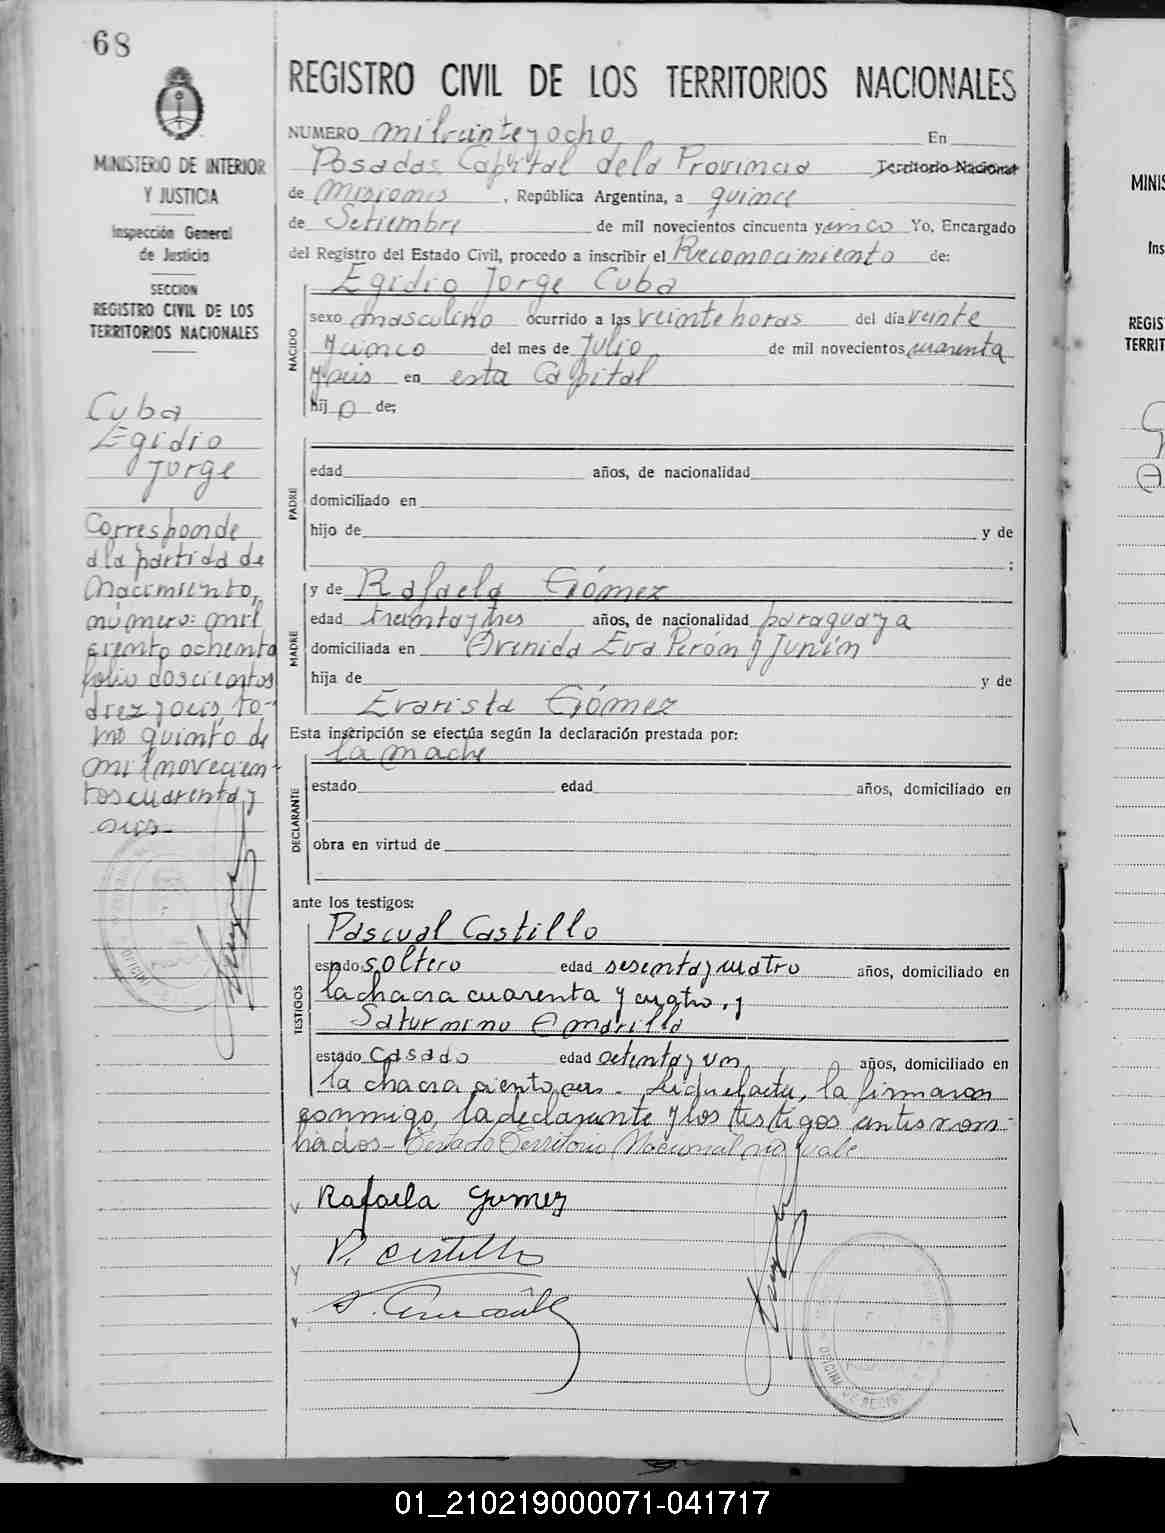 68
MINISTERIO DE INTERIOR
Y JUSTICIA
Inspección General
de Justicia
SECCION
REGISTRO CIVIL DE LOS
TERRITORIOS NACIONALES
Cuba
Egidio
Jorge
Corresponde
a la partida de
Nacimiento,
número: mil
ciento ochenta
folio doscientos
diez y seis, to-
mo quinto de
mil novecien-
tos cuarenta y
seis-
REGISTRO CIVIL DE LOS TERRITORIOS NACIONALES
NUMERO mil veinte y ocho En
Posadas Capital de la Provincia Territorio Nacional
de Misiones, República Argentina, a quince
de Setiembre de mil novecientos cincuenta y cinco Yo, Encargado
del Registro del Estado Civil, procedo a inscribir el Reconocimiento de:
Egidio Jorge Cuba
NACIDO
sexo masculino ocurrido a las veinte horas del día veinte
y cinco del mes de Julio de mil novecientos cuarenta
y seis en esta Capital
hijo de:
PADRE
edad años, de nacionalidad
domiciliado en
hijo de y de
;
MADRE
y de Rafaela Gómez
edad treinta y tres años, de nacionalidad paraguaya
domiciliada en Avenida Eva Perón y Junín
hija de y de
Evarista Gómez
Esta inscripción se efectúa según la declaración prestada por:
la madre
DECLARANTE
estado edad años, domiciliado en
obra en virtud de
ante los testigos:
TESTIGOS
Pascual Castillo
estado soltero edad sesenta y cuatro años, domiciliado en
la chacra cuarenta y cuatro, y
Saturnino Amarilla
estado casado edad setenta y un años, domiciliado en
la chacra ciento seis. Leída el acta, la firmaron
conmigo, la declarante y los testigos antes nom-
brados- Testado Territorio Nacional no vale
Rafaela Gomez
P. Castillo
S. Amarilla
01_210219000071-041717